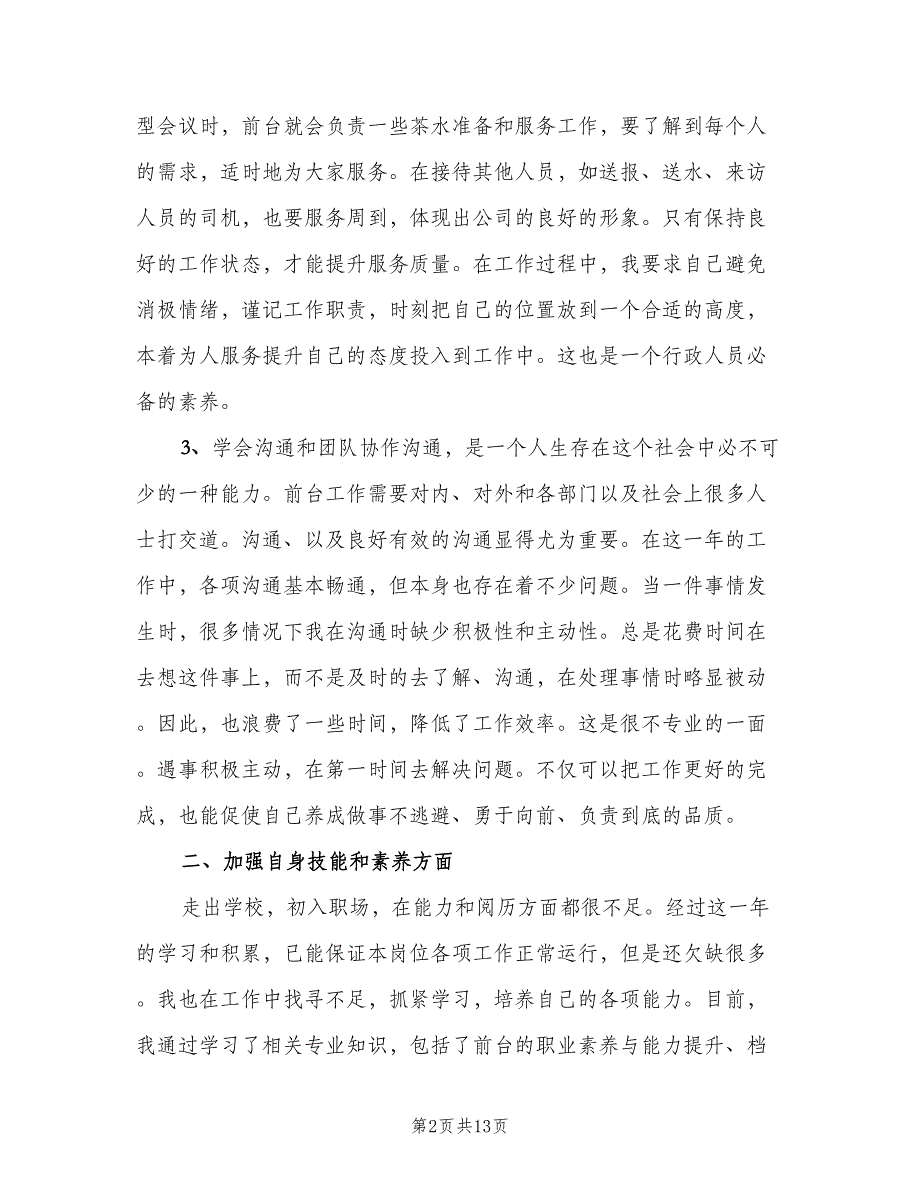 型会议时，前台就会负责一些茶水准备和服务工作，要了解到每个人
的需求，适时地为大家服务。在接待其他人员，如送报、送水、来访
人员的司机，也要服务周到，体现出公司的良好的形象。只有保持良
好的工作状态，才能提升服务质量。在工作过程中，我要求自己避免
消极情绪，谨记工作职责，时刻把自己的位置放到一个合适的高度，
本着为人服务提升自己的态度投入到工作中。这也是一个行政人员必
备的素养。
3、学会沟通和团队协作沟通，是一个人生存在这个社会中必不可
少的一种能力。前台工作需要对内、对外和各部门以及社会上很多人
士打交道。沟通、以及良好有效的沟通显得尤为重要。在这一年的工
作中，各项沟通基本畅通，但本身也存在着不少问题。当一件事情发
生时，很多情况下我在沟通时缺少积极性和主动性。总是花费时间在
去想这件事上，而不是及时的去了解、沟通，在处理事情时略显被动
。因此，也浪费了一些时间，降低了工作效率。这是很不专业的一面
。遇事积极主动，在第一时间去解决问题。不仅可以把工作更好的完
成，也能促使自己养成做事不逃避、勇于向前、负责到底的品质。
二、加强自身技能和素养方面
走出学校，初入职场，在能力和阅历方面都很不足。经过这一年
的学习和积累，已能保证本岗位各项工作正常运行，但是还欠缺很多
。我也在工作中找寻不足，抓紧学习，培养自己的各项能力。目前，
我通过学习了相关专业知识，包括了前台的职业素养与能力提升、档
第2页共13页